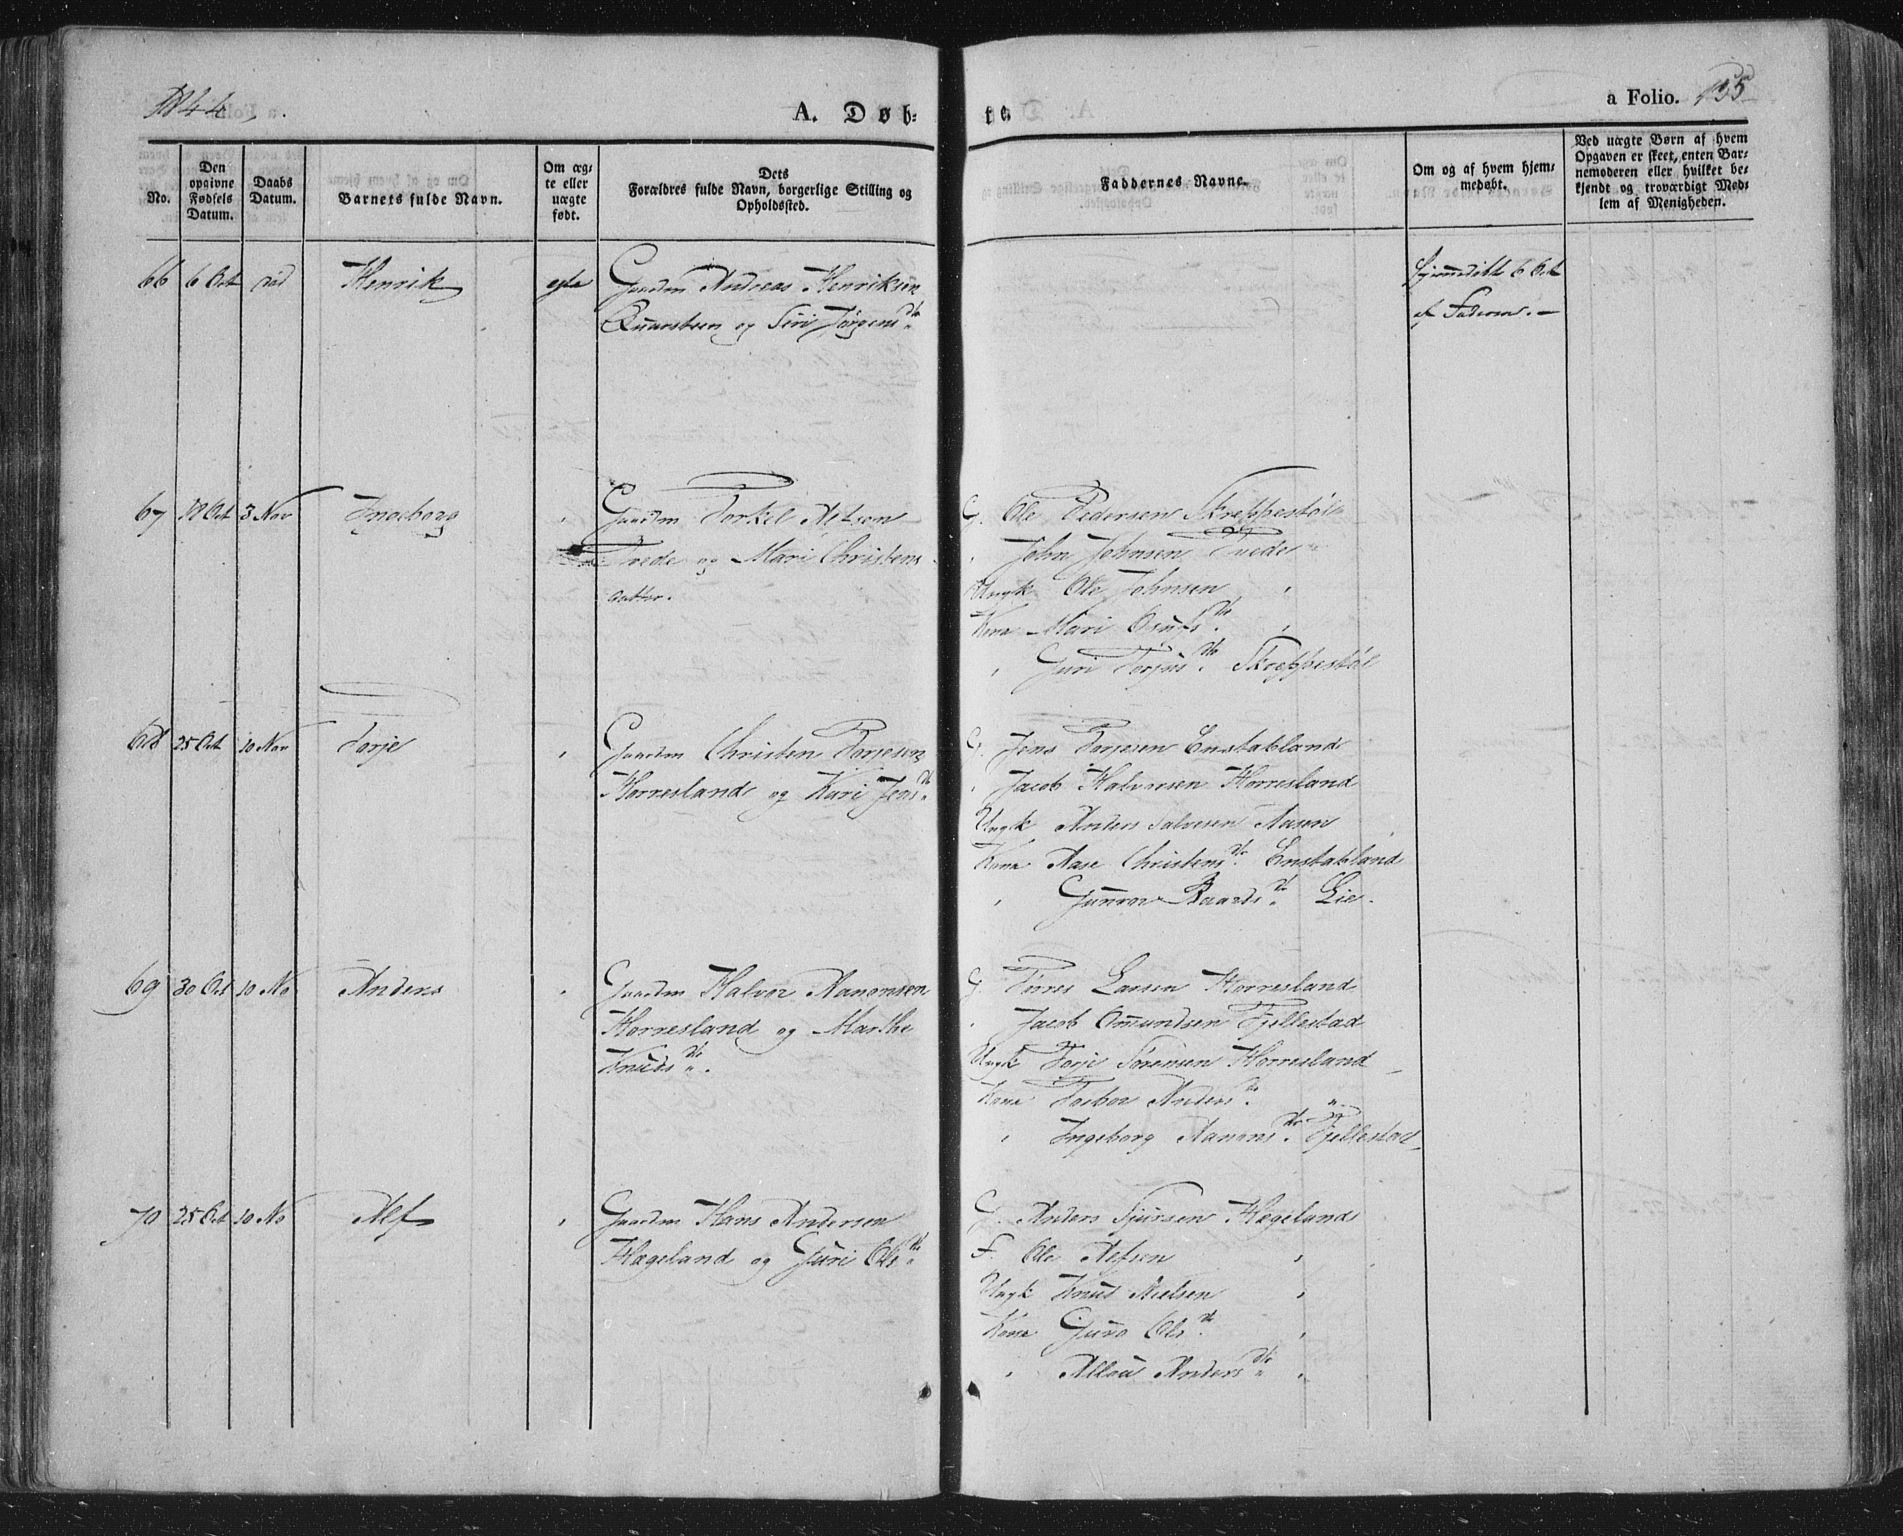 1844.
A. Døb-
te.
a Folio. 135
No.
Den opgivne Fødsels Datum.
Daabs Datum.
Barnets fulde Navn.
Om ægte eller uægte født.
Dets Forældres fulde Navn, borgerlige Stilling og Opholdssted.
Faddernes Navne.
Om og af hvem hjemmedøbt.
Ved uægte Børn af hvem Opgaven er skeet, enten Barnemoderen eller hvilket bekjendt og troværdigt Medlem af Menigheden.
66 6 Oct Henrik egte Gaardm Andreas Henriksen
Quarsteen og Siri Jørgensdtr
Hjemmedøbt 6 Oct
af Faderen. —
67 18 Oct 3 Nov Ingeborg " Gaardm Torkel
Tvede og Mari Christens
datter.
G. Ole Pedersen Skreppestøl
" John Johnsen Tvede
Ungk Ole Johnsen "
Kone Mari dtr "
" Guri Torjusdtr Skreppestøl
68 25 Oct 10 Nov Torje " Gaardm Christen Torjesen
Horresland og Kari Jensdtr
G. Jens Torjesen Enstabland
" Jacob Halvorsen Horresland
Ungk Anders Salvesen Aasen
Kone Aase Christensdtr Enstabland
" Gunvor Baardsdtr Lie.
69 30 Oct 10 No Anders " Gaardm Halvor Aanonsen
Horresland og Marthe
Knudsdtr.
G Tørres Larsen Horresland
" Jacob Omundsen Fjellestad
Ungk Torje Sørensen Horresland
Kone Torbor Andersdtr "
" Ingeborg Aanonsdtr Fjellestad
70 25 Oct 10 No Alf " Gaardm Hans Andersen
Hægeland og Guri Olsdtr
G. Anders Sjursen Hægeland
F. Ole Alfsen "
Ungk Knud Nielsen "
Kone Guro Olsdtr "
" Andersdtr "